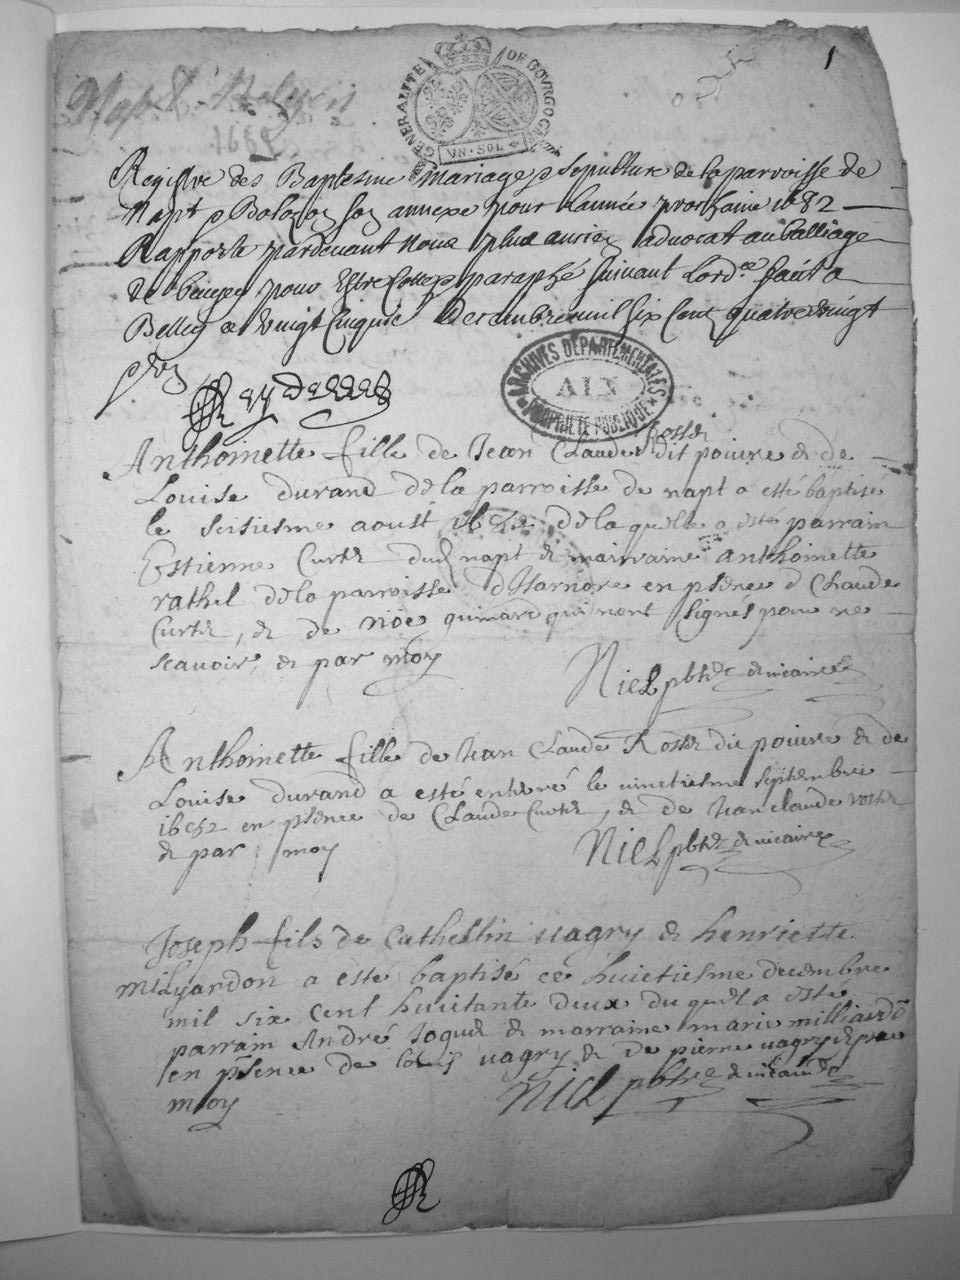 1
GENERALITE DE BOURGOGNE
UN·SOL
Registre des Baptesme mariage & sepulture de la parroisse de
Napt & Bolozon son annexe pour l'année prochaine 1682
Rapporté pardevant Nous plus ancien advocat au balliage
de bugey pour Estre Cotté & paraphé suivant Lord.ce faict a
Belley ce vingt Cinquie Decembre mil six Cent quatre vingt
ARCHIVES DÉPARTEMENTALES
AIN
PROPRIÉTÉ PUBLIQUE
Rosset
Anthoinette fille de Jean Claude dit poivre & de
Louise durand de la parroisse de napt a esté baptisé
le seisiesme aoust 1682 de la quelle a esté parrain
Estienne Curtet dud napt & marraine anthoinette
rathel de la parroisse d'Isarnore en pñce d Claude
Curtet, & de noé qui nont signés pour ne
scavoir, & par moy
Niel pbtre & vicaire
Anthoinette fille de Jean Claude Rosset dit poivre & de
Louise durand a esté enterré le septembre
1682 en pñce de Claude Curtet, & de Jean claude rosset
& par moy
Niel pbtre & vicaire
Joseph fils de Cathellin vagry & henriette
milyardon a esté baptisé ce huictiesme decembre
mil six cent huictante deux du quel a esté
parrain André Joquet & marraine marie milliardõ
en pñce de Louis vagry & de pierre vagry & par
moy
Niel pbtre & vicaire